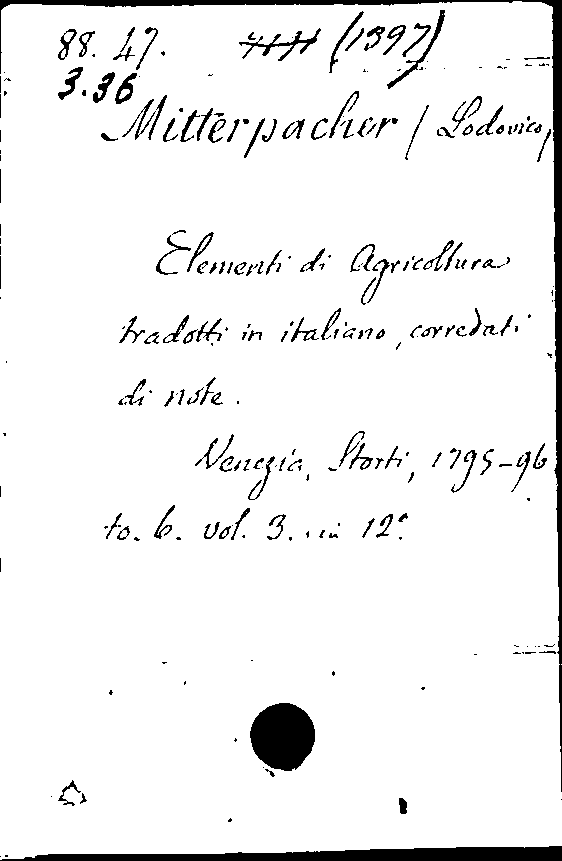 88. 47. (1397)
3.36
Mitterpacher / Lodovico,
Elementi di Agricoltura
tradotti in italiano, corredati
di note.
Venezia, Storti, 1795-96
to. 6. vol. 3. in 12°.